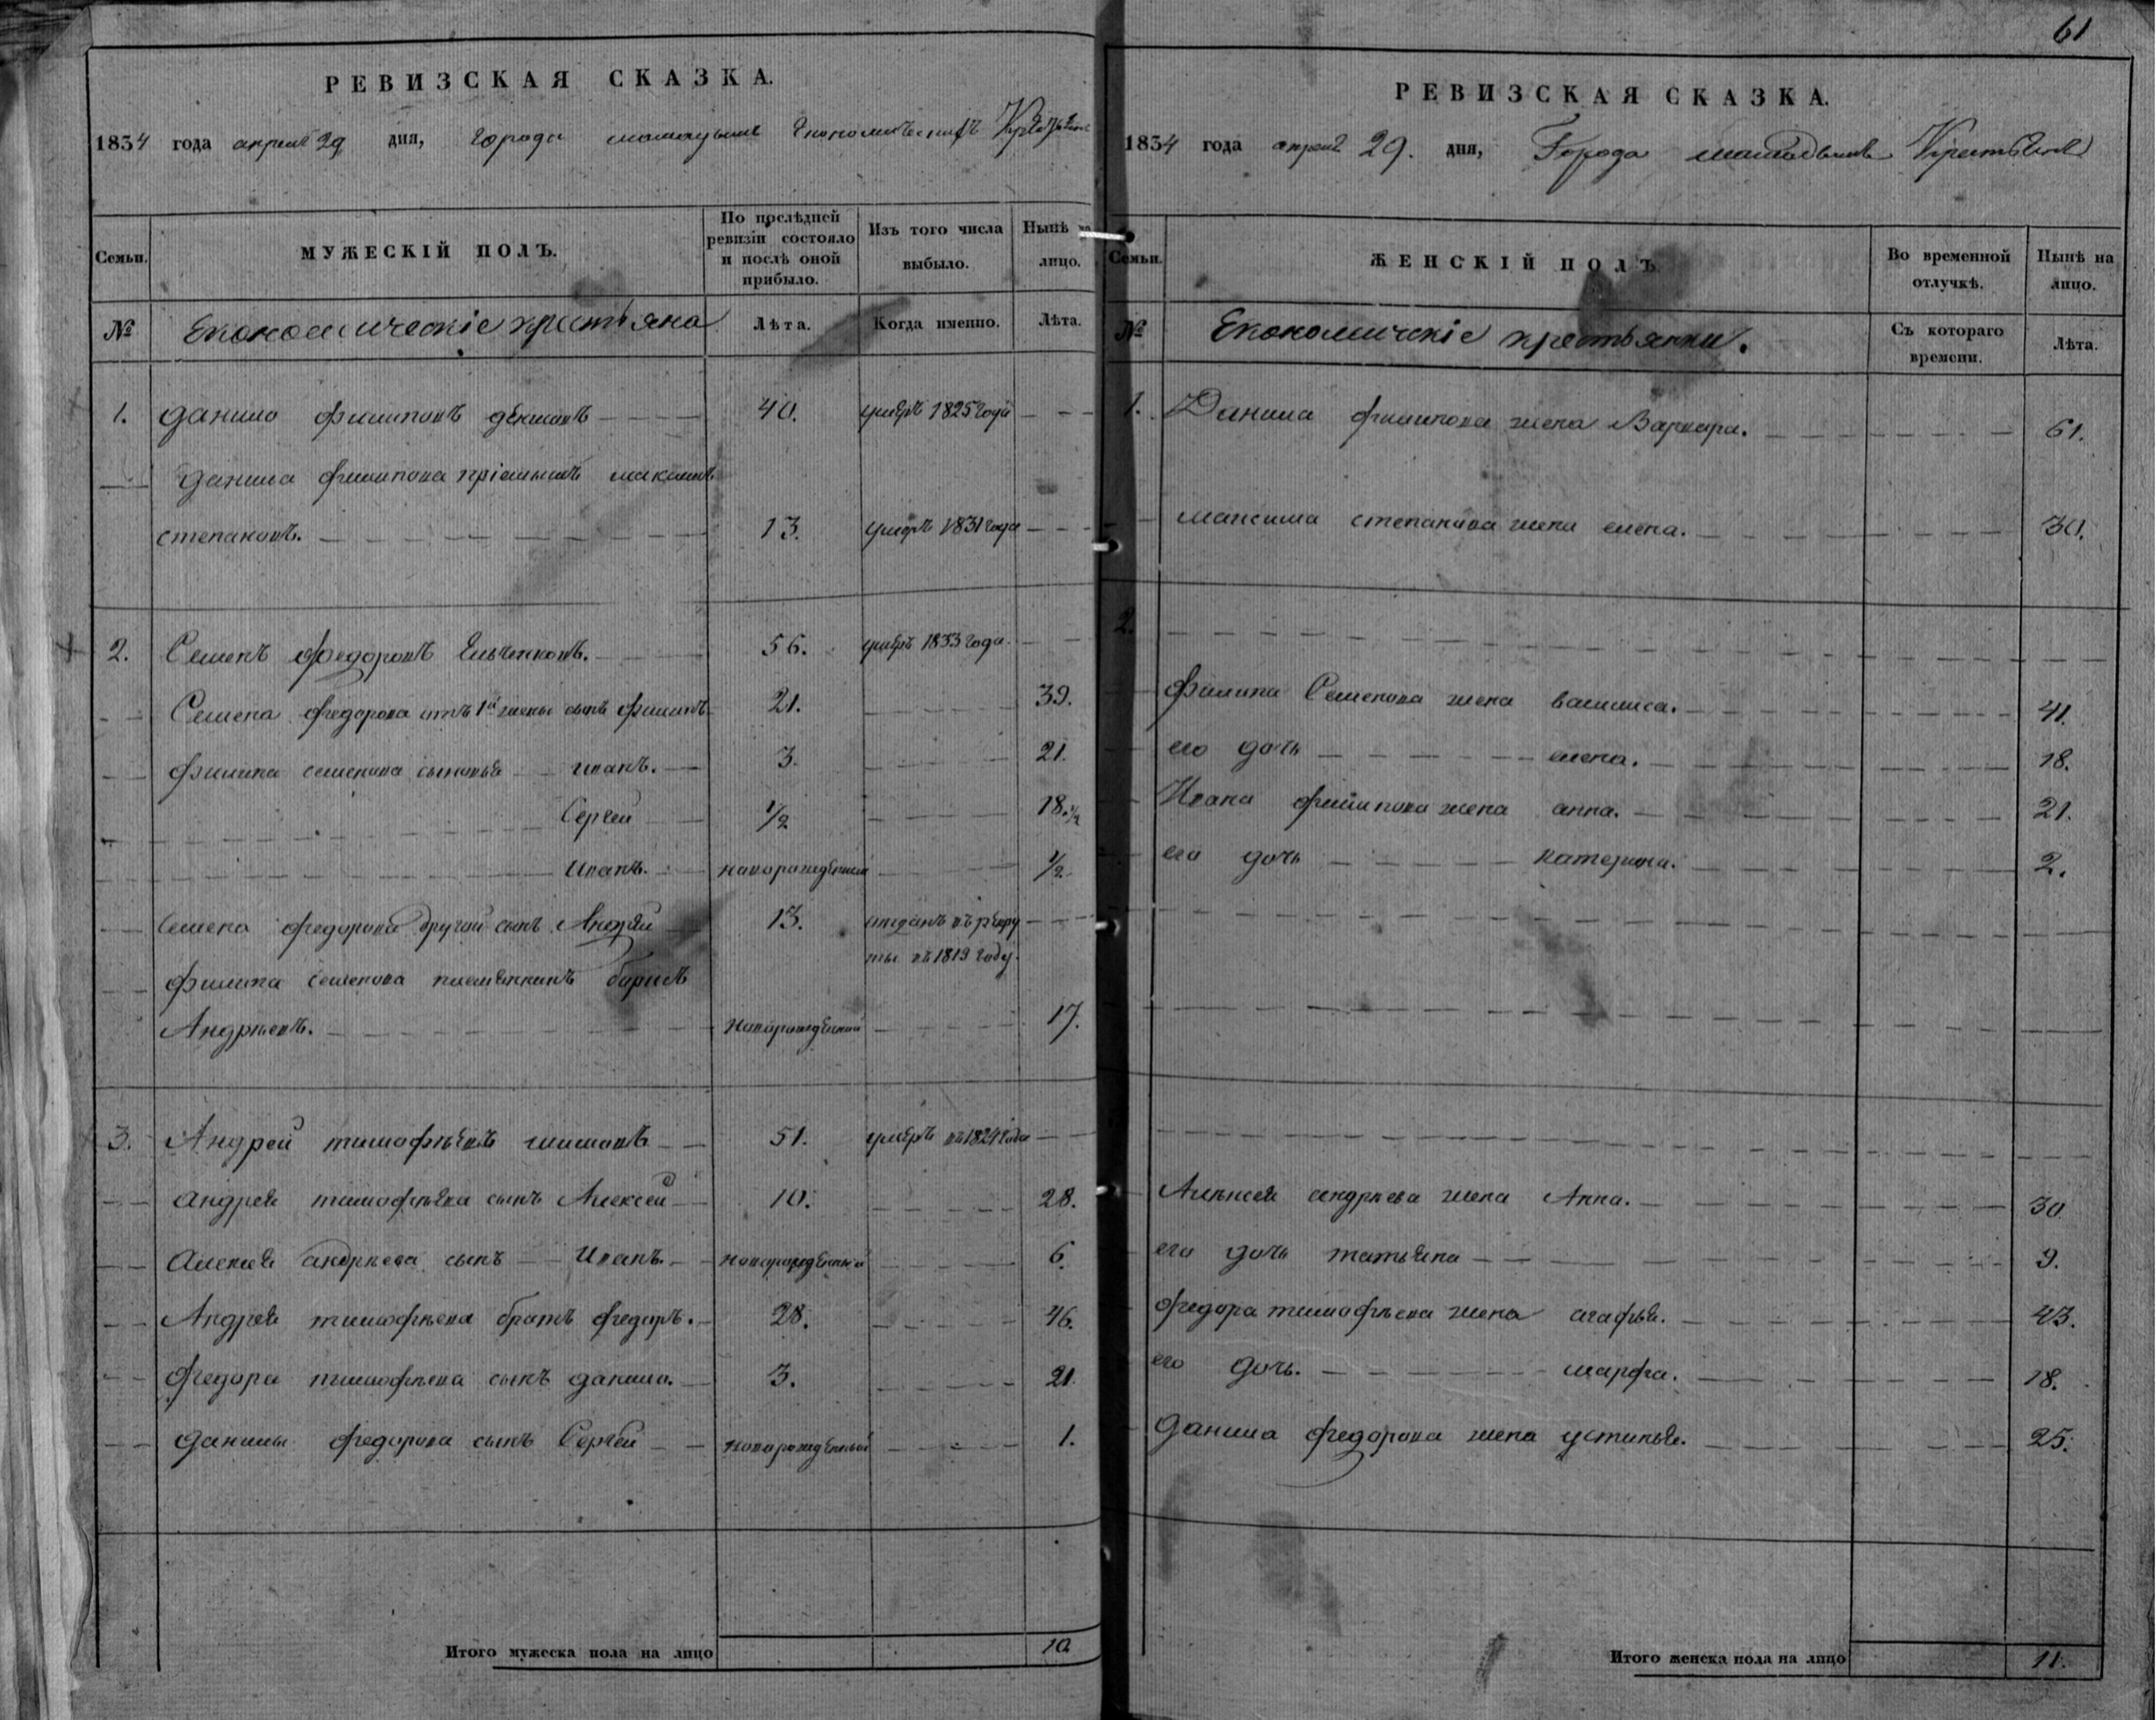 61
РЕВИЗСКАЯ СКАЗКА.
1834 года апреля 29 дня, города экономическихъ
Семьи.
МУЖЕСКІЙ ПОЛЪ.
По послѣдней ревизіи состояло и послѣ оной прибыло.
Изъ того числа выбыло.
Нынѣ на лицо.
№ Економическіе крестьяна Лѣта. Когда именно. Лѣта.
1. данило филиповъ 40. умеръ 1825 года
данила филипова пріемышъ максимъ
степановъ. 13. умеръ 1831 года
2. Семенъ федоровъ 56. умеръ 1833 года.
Семена федорова отъ 1й жены сынъ филипъ 21. 39.
филипа семенова сыновья иванъ. 3. 21.
Сергей 1/2 18.1/2
иванъ. новорожденный 1/2
семена федорова другой сынъ Андрей 13. отданъ въ рекру
ты въ 1819 году.
филипа семенова племянникъ борисъ
Андрѣевъ. новорожденный 17.
3. Андрей тимофѣевъ 51. умеръ въ 1824 года
андрея тимофѣева сынъ Алексей 10. 28.
алексея андрѣева сынъ Иванъ. новорожденный 6.
Андрея тимофѣева братъ федоръ. 28. 46.
федора тимофѣева сынъ данило. 3. 21.
данилы федорова сынъ Сергей новорожденный 1.
Итого мужеска пола на лицо 10
РЕВИЗСКАЯ СКАЗКА.
1834 года апреля 29. дня, Города
Семьи.
ЖЕНСКІЙ ПОЛЪ
Во временной отлучкѣ.
Нынѣ на лицо.
№ Економическіе крестьянки. Съ котораго времени. Лѣта.
1. Данила филипова жена Варвара. 61.
максима степанова жена елена. 30.
2.
филипа Семенова жена василиса. 41.
его дочь елена. 18.
Ивана филипова жена анна. 21.
его дочь катерина. 2.
Алексея андрѣева жена Анна. 30
его дочь татьяна 9.
федора тимофѣева жена агафья. 43.
его дочь. марфа. 18.
данила федорова жена устинья. 25.
Итого женска пола на лицо 11.